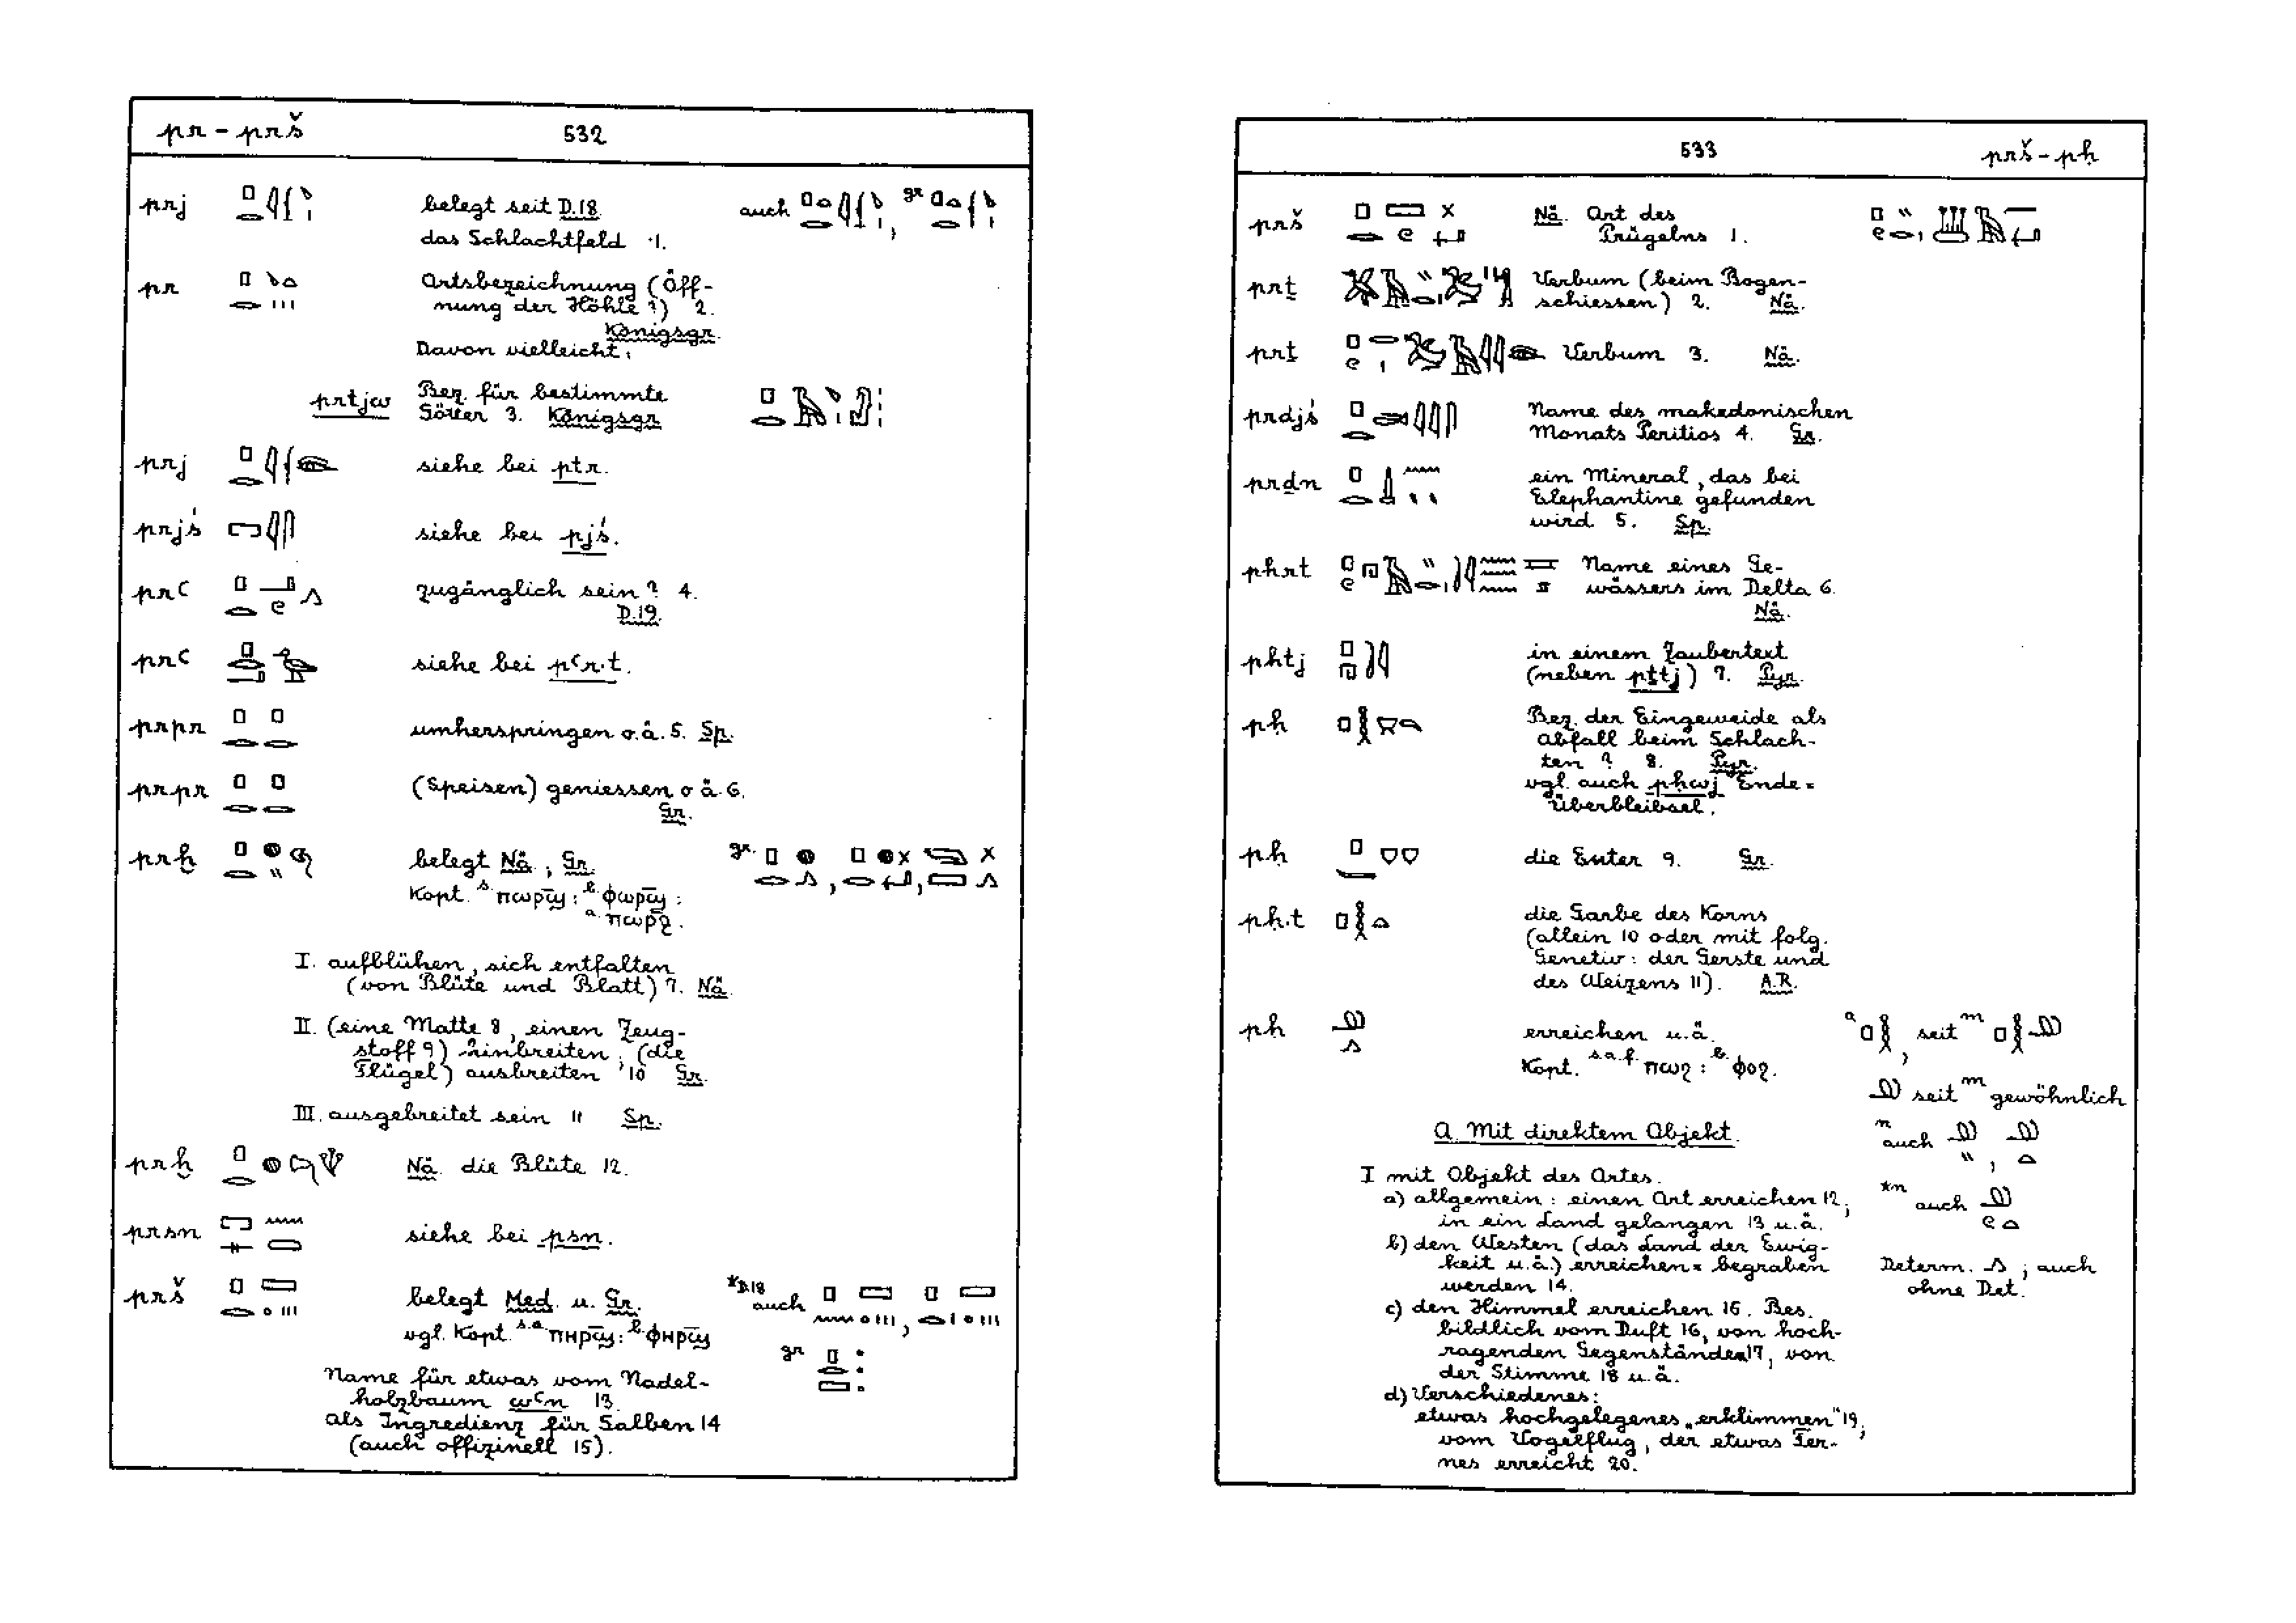 pr - prš 532
prj belegt seit D.18. auch , gr
das Schlachtfeld 1.
pr Ortsbezeichnung (Öff-
nung der Höhle?) 2.
Königsgr.
Davon vielleicht:
prtjw Bez. für bestimmte
Götter 3. Königsgr
prj siehe bei ptr.
prjś siehe bei pjś.
prꜥ zugänglich sein? 4.
D.19.
prꜥ siehe bei pꜥr.t.
prpr umherspringen o.ä. 5. Sp.
prpr (Speisen) geniessen o ä. 6.
Gr.
prḫ belegt Nä.; Gr. gr. , ,
Kopt. s. ⲡⲱⲣϣ̅ : b. ⲫⲱⲣϣ̅ :
a. ⲡⲱⲣϩ̅.
I. aufblühen, sich entfalten
(von Blüte und Blatt) 7. Nä.
II. (eine Matte 8, einen Zeug-
stoff 9) hinbreiten; (die
Flügel) ausbreiten 10 Gr.
III. ausgebreitet sein 11 Sp.
prḫ Nä. die Blüte 12.
prsn siehe bei psn.
prš belegt Med. u. Gr. *D.18 auch ,
vgl. Kopt. s.a. ⲡⲏⲣϣ̅ : b. ⲫⲏⲣϣ̅ gr
Name für etwas vom Nadel-
holzbaum wꜥn 13.
als Ingredienz für Salben 14
(auch offizinell 15).
533 prš - pḥ
prš Nä. Art des
Prügelns 1. ,
prṯ Verbum (beim Bogen-
schiessen) 2. Nä.
prṯ Verbum 3. Nä.
prdjś Name des makedonischen
Monats Peritios 4. Gr.
prḏn ein Mineral, das bei
Elephantine gefunden
wird 5. Sp.
phrt Name eines Ge-
wässers im Delta 6.
Nä.
phtj in einem Zaubertext
(neben pṯtj) 7. Pyr.
pḥ Bez. der Eingeweide als
Abfall beim Schlach-
ten? 8. Pyr.
vgl. auch pḥwj Ende =
Überbleibsel.
pḥ die Euter 9. Gr.
pḥ.t die Garbe des Korns
(allein 10 oder mit folg.
Genetiv: der Gerste und
des Weizens 11). A.R.
pḥ erreichen u.ä. a , seit m
Kopt. s.a.f. ⲡⲱϩ : b. ⲫⲟϩ.
seit m gewöhnlich
A. Mit direktem Objekt. n auch ,
I mit Objekt des Ortes.
a) allgemein: einen Ort erreichen 12; *n auch
in ein Land gelangen 13 u.ä.
b) den Westen (das Land der Ewig-
keit u.ä.) erreichen = begraben Determ. ; auch
werden 14. ohne Det.
c) den Himmel erreichen 15. Bes.
bildlich vom Duft 16, von hoch-
ragenden Gegenständen 17, von
der Stimme 18 u.ä.
d) Verschiedenes:
etwas hochgelegenes „erklimmen" 19;
vom Vogelflug, der etwas Fer-
nes erreicht 20.